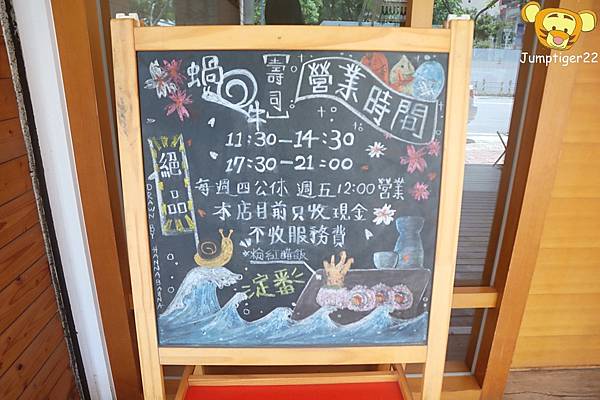 Jumptiger22
蝸牛
【壽司】
營業時間
11:30-14:30
17:30-21:00
每週四公休 週五12:00營業
本店目前只收現金
不收服務費
絕品
DRAWN BY HANNABANA
粉紅醋飯
淀番